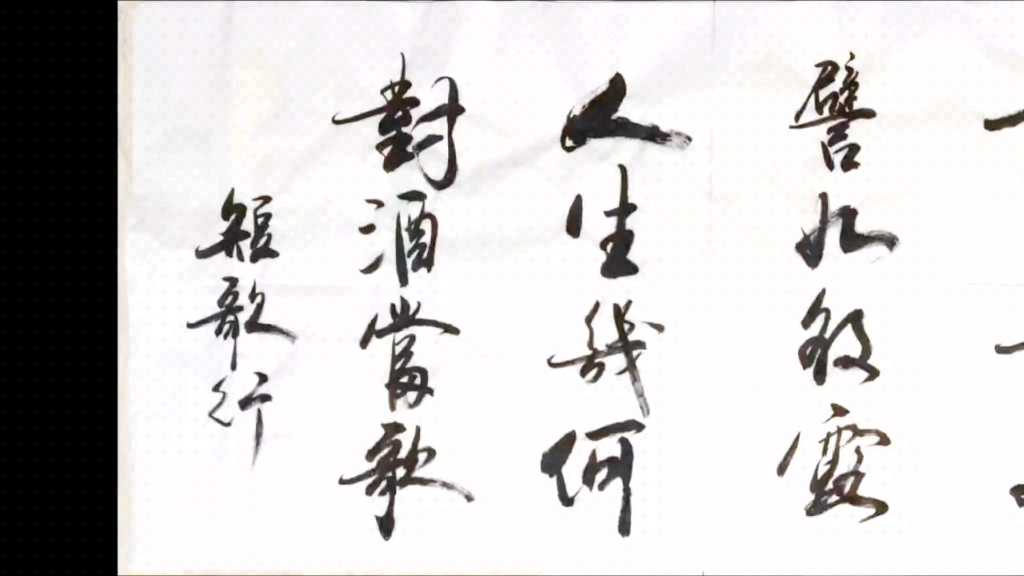 短歌行
對酒當歌
人生幾何
譬如朝露